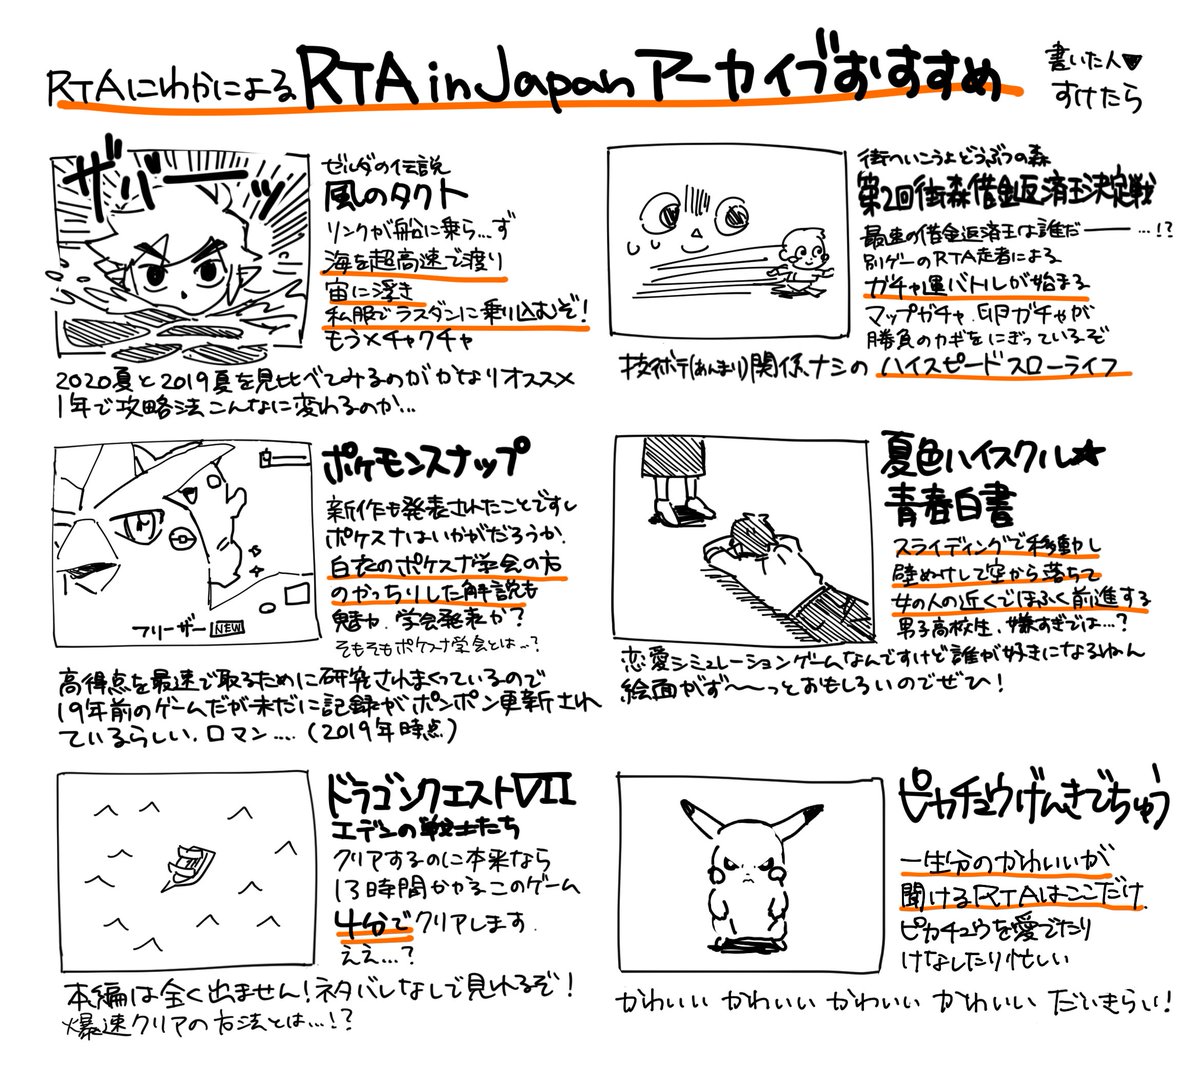 RTAにわかによる RTA in Japan アーカイブおすすめ
書いた人♥
すけたら
ザバーーッ
ゼルダの伝説
風のタクト
リンクが船に乗ら…ず
海を超高速で渡り
宙に浮き
私服でラスダンに乗り込むぞ!
もうメチャクチャ
2020夏と2019夏を見比べてみるのがかなりオススメ
1年で攻略法こんなに変わるのか…
街へいこうよどうぶつの森
第2回街森借金返済王決定戦
最速の借金返済王は誰だ――…!?
別ゲーのRTA走者による
ガチャ運バトルが始まる
マップガチャ、卵ガチャが
勝負のカギをにぎっているぞ
技術ボテ(あんまり)関係ナシの ハイスピードスローライフ
フリーザー NEW
ポケモンスナップ
新作も発表されたことですし
ポケスナはいかがだろうか。
白衣のポケスナ学会の方
のがっちりした解説も
魅力。学会発表か?
そもそもポケスナ学会とは…?
高得点を最速で取るために研究されまくっているので
19年前のゲームだが未だに記録がポンポン更新され
ているらしい。ロマン…. (2019年時点)
夏色ハイスクル★
青春白書
スライディングで移動し
壁ぬけして空から落ちて
女の人の近くでほふく前進する
男子高校生、嫌すぎでは…?
恋愛シミュレーションゲームなんですけど誰が好きになるねん
絵面がず〜〜っとおもしろいのでぜひ!
ドラゴンクエストVII
エデンの戦士たち
クリアするのに本来なら
13時間かかるこのゲーム
4分でクリアします.
ええ…?
本編は全く出ません!ネタバレなしで見れるぞ!
爆速クリアの方法とは…!?
ピカチュウげんきでちゅう
一生分のかわいいが
聞けるRTAはここだけ.
ピカチュウを愛でたり
けなしたり忙しい
かわいい かわいい かわいい かわいい だいきらい!